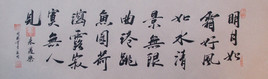 明月如
霜好風
如水清
景無限
曲港跳
魚圓荷
瀉露寂
寞無人
見